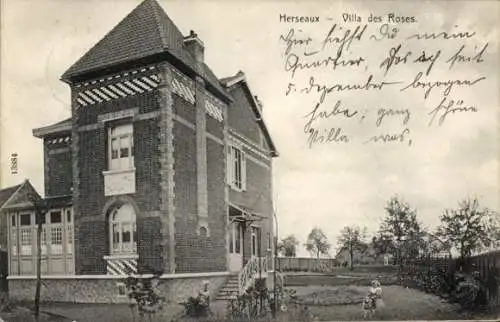 Herseaux – Villa des Roses.
Hier siehst Du mein
Quartier, das ich seit
5. Dezember bezogen
habe, ganz schöne
Villa was,
13884